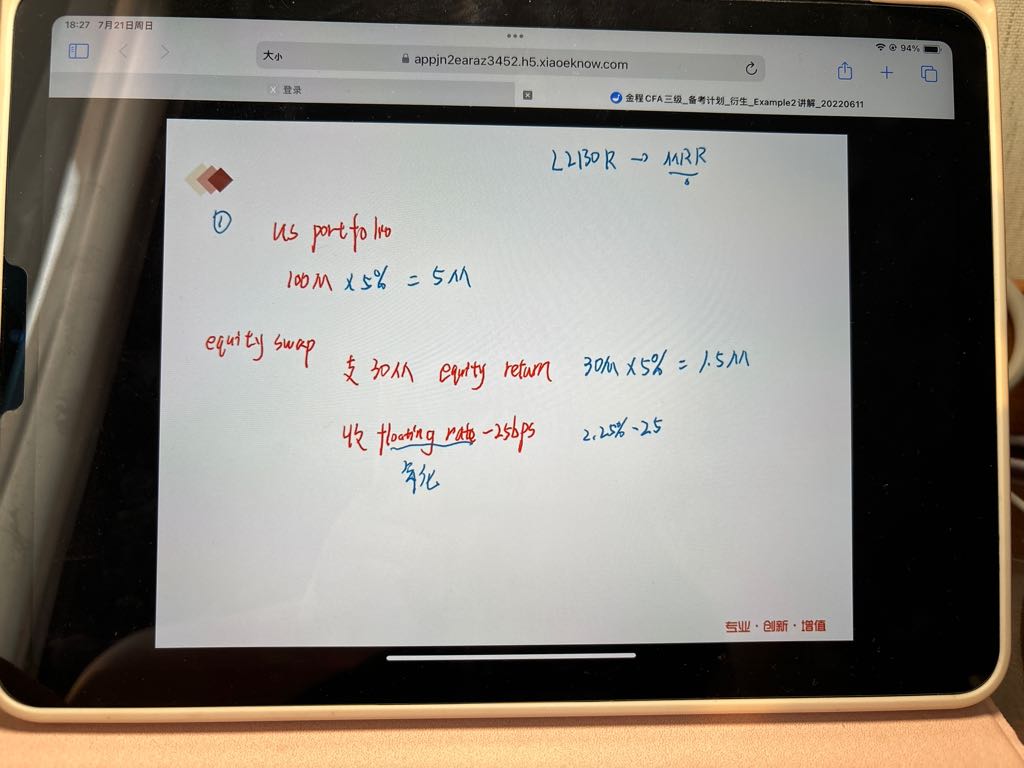 18:27 7月21日周日
94%
大小
appjn2earaz3452.h5.xiaoeknow.com
登录
金程CFA三级_备考计划_衍生_Example2讲解_20220611
LIBOR → MRR
① US portfolio
100M × 5% = 5M
equity swap
支 30M equity return 30M × 5% = 1.5M
收 floating rate - 25bps 2.25% - 25
年化
专业·创新·增值